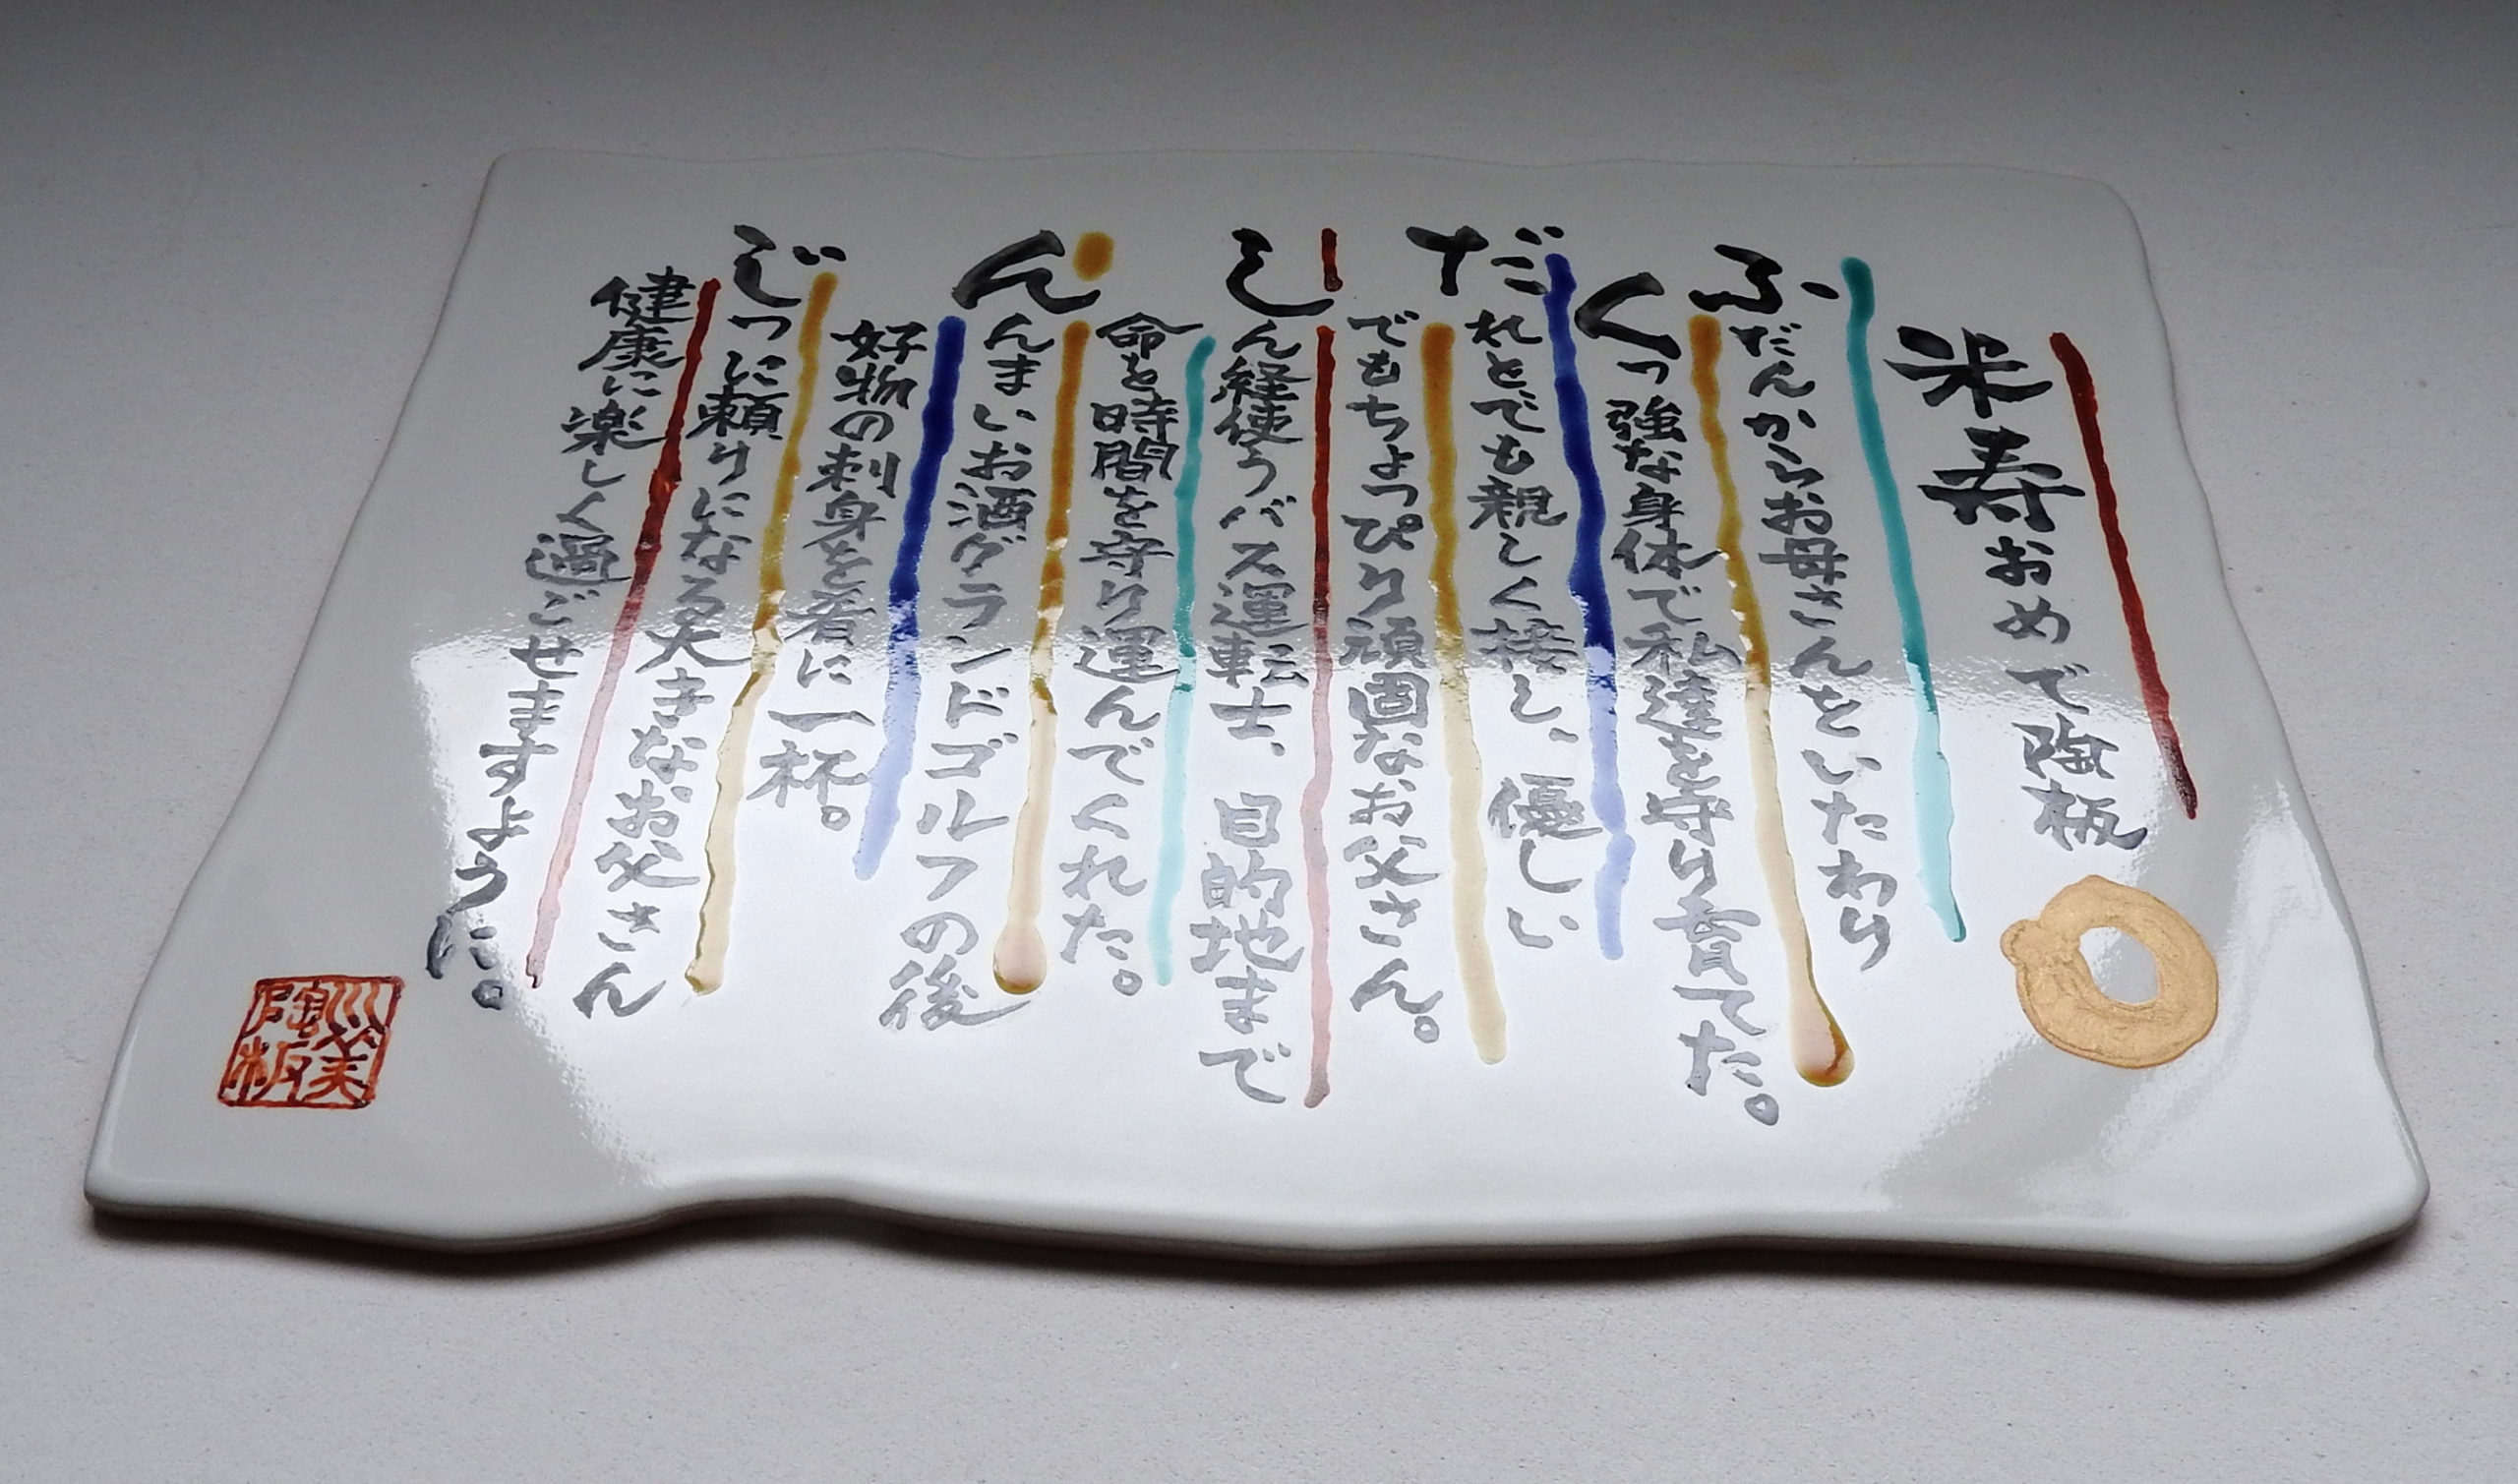 米寿おめで陶板
ふだんからお母さんをいたわり
くっ強な身体で私達を守り育てた。
だれとでも親しく接し、優しい
でもちょっぴり頑固なお父さん。
しん経使うバス運転士、目的地まで
命と時間を守り運んでくれた。
んまいお酒グランドゴルフの後
好物の刺身を肴に一杯。
じつに頼りになる大きなお父さん
健康に楽しく過ごせますように。
陶板